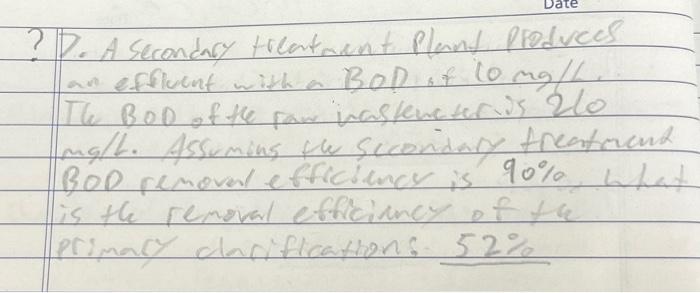 Date
? D. A Secondary treatment Plant Produces
an effluent with a BOD of 10 mg/L.
The BOD of the raw wastewater is 210
mg/L. Assuming the Secondary treatment
BOD removal efficiency is 90%, what
is the removal efficiency of the
primary clarifications. 52%